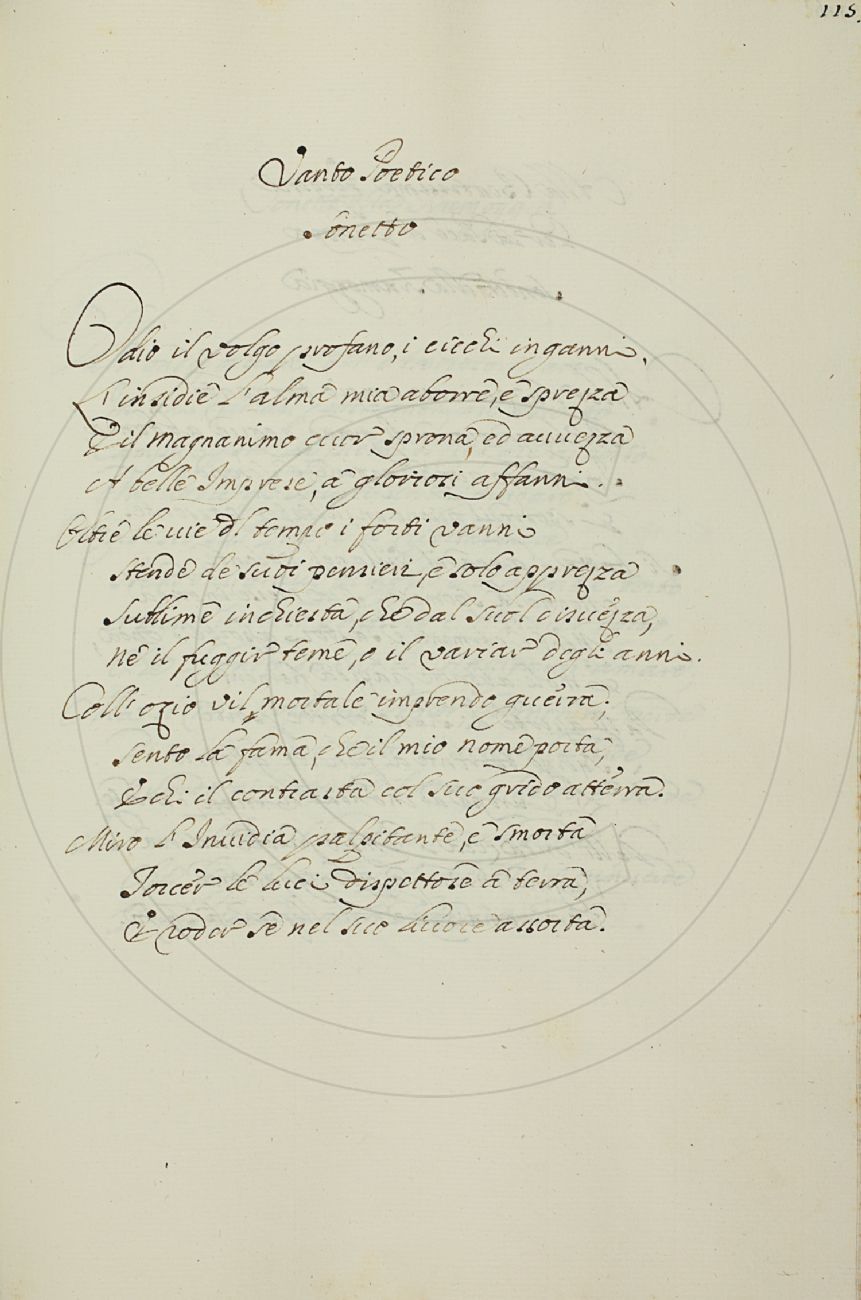 115
Vanto Poetico
Sonetto
Odio il volgo profano, i ciechi inganni,
L'insidie l'alma mia aborre, e sprezza
E il magnanimo cuor sprona, ed avvezza
A belle Imprese, a gloriosi affanni.
Oltre le vie del tempo i forti vanni
stende de suoi pensieri, e solo apprezza
sublime inchiesta, che dal suol disvezza,
Né il fuggir teme, o il variar degli anni.
Coll'ozio vil, mortale imprendo guerra;
sento la fama, che il mio nome porta,
E chi il contrasta col suo grido atterra.
Miro l'Invidia palpitante, e smorta
Torcer le luci dispettose a terra,
E roder se nel suo livore assorta.